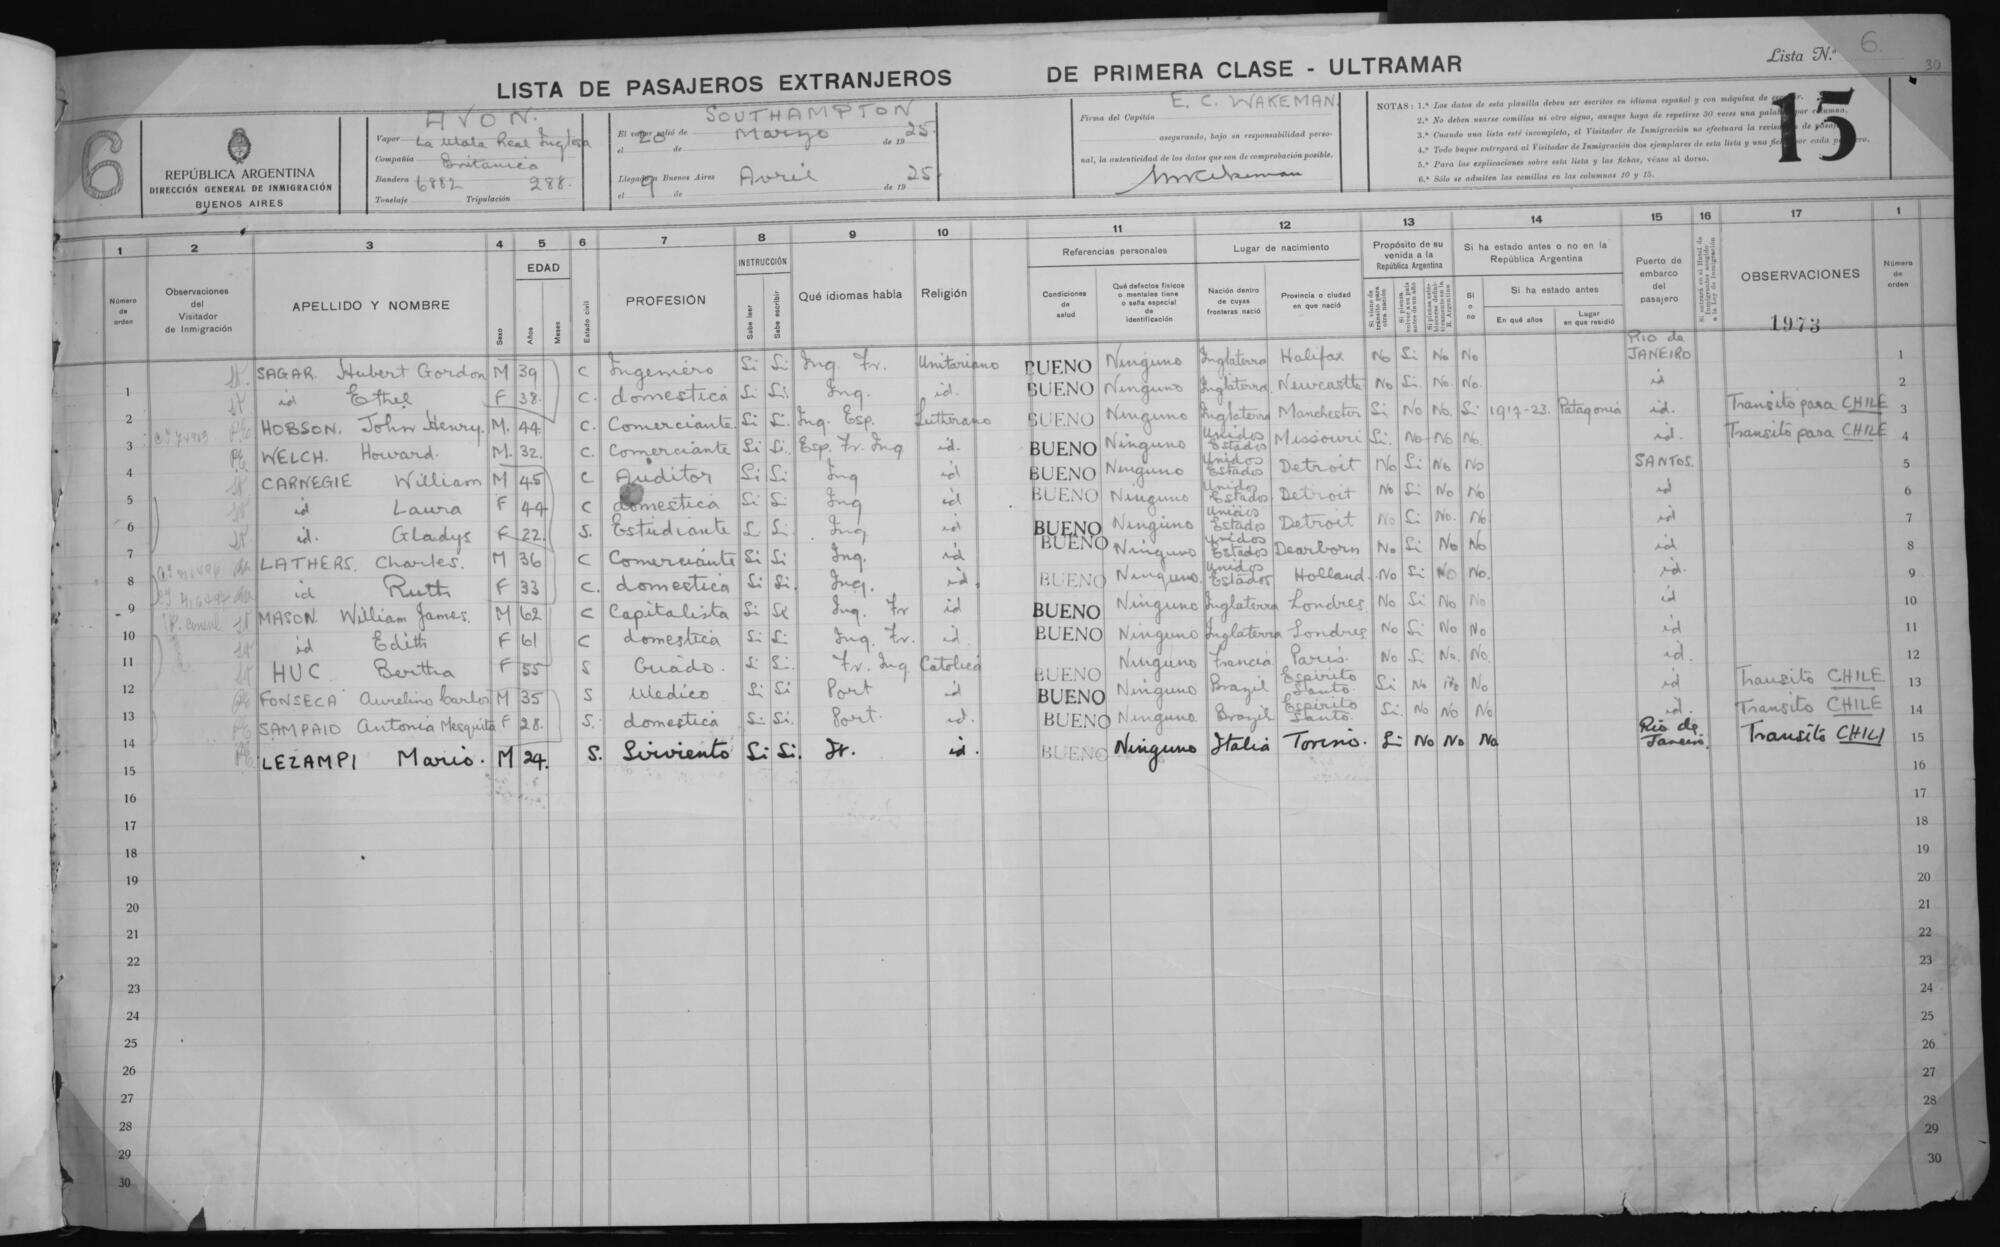 Lista N.º 6.
30
LISTA DE PASAJEROS EXTRANJEROS DE PRIMERA CLASE - ULTRAMAR
6
REPÚBLICA ARGENTINA
DIRECCIÓN GENERAL DE INMIGRACIÓN
BUENOS AIRES
Vapor AVON.
Compañía La Mala Real Inglesa
Bandera Britanica
Tonelaje 6882 Tripulación 288.
El vapor salió de SOUTHAMPTON
el 20 de Marzo de 1925.
Llegado a Buenos Aires
el 9 de Avril de 1925.
E. C. WAKEMAN
Firma del Capitán
asegurando, bajo su responsabilidad perso-
nal, la autenticidad de los datos que son de comprobación posible.
NOTAS: 1.ª Los datos de esta planilla deben ser escritos en idioma español y con máquina de
2.ª No deben usarse comillas ni otro signo, aunque haya de repetirse 30 veces una palabra por columna.
3.ª Cuando una lista esté incompleta, el Visitador de Inmigración no efectuará la
4.ª Todo buque entregará al Visitador de Inmigración dos ejemplares de esta lista y una ficha por cada
5.ª Para las explicaciones sobre esta lista y las fichas, véase al dorso.
6.ª Sólo se admiten las comillas en las columnas 10 y 15.
15
1 2 3 4 5 6 7 8 9 10 11 12 13 14 15 16 17 1
Número de orden
Observaciones del Visitador de Inmigración
APELLIDO Y NOMBRE
Sexo
EDAD
Años
Meses
Estado civil
PROFESIÓN
INSTRUCCIÓN
Sabe leer
Sabe escribir
Qué idiomas habla
Religión
Referencias personales
Condiciones de salud
Qué defectos físicos o mentales tiene o seña especial de identificación
Lugar de nacimiento
Nación dentro de cuyas fronteras nació
Provincia o ciudad en que nació
Propósito de su venida a la República Argentina
Si viene de tránsito para otra nación
Si ha estado antes o no en la República Argentina
Si o no
Si ha estado antes
En qué años
Lugar en que residió
Puerto de embarco del pasajero
OBSERVACIONES
1973
Número de orden
SAGAR. Hubert Gordon M 39 C Ingeniero Si Si Ing. Fr. Unitariano BUENO Ninguno Inglaterra Halifax No Si No No Rio de JANEIRO 1
1 id Ethel F 38. C. domestica Si Si Ing. id. BUENO Ninguno Inglaterra Newcastle No Si. No. No. id 2
2 HOBSON. John Henry. M. 44. C. Comerciante. Si Si. Ing. Esp. Lutterano BUENO Ninguno Inglaterra Manchester Si No No. Si 1917-23. Patagonia id. Transito para CHILE 3
3 WELCH. Howard. M. 32. C. Comerciante Si Si. Esp. Fr. Ing id. BUENO Ninguno Unidos Estados Missouri Si. No No No. id. Transito para CHILE 4
4 CARNEGIE William M 45 C Auditor Si Si Ing id BUENO Ninguno Unidos Estados Detroit No Si No No SANTOS. 5
5 id Laura F 44 C domestica Si Si Ing id BUENO Ninguno Unidos Estados Detroit No Si No No id 6
6 id. Gladys F 22. S. Estudiante Si Si. Ing id BUENO Ninguno Unidos Estados Detroit No Si No. No id 7
7 LATHERS. Charles. M 36 C Comerciante Si Si Ing. id BUENO Ninguno Unidos Estados Dearborn No Si No No id 8
8 id Ruth F 33 C. domestica Si Si. Ing. id. BUENO Ninguno. Unidos Estados Holland. No Si No No. id. 9
9 MASON. William James. M 62 C Capitalista Si Si Ing. Fr id BUENO Ninguno Inglaterra Londres No Si No No id 10
10 id Edith F 61 C domestica Si Si. Ing. Fr. id. BUENO Ninguno Inglaterra Londres No Si No. No id 11
11 HUC Bertha F 55 S Criado. Si Si. Fr. Ing Catolica BUENO Ninguno Francia Paris. No Si No. No. id. 12
12 FONSECA Aurelino Carlos M 35 S Medico Si Si Port id BUENO Ninguno Brazil Espirito Santo. Si No No No id Transito CHILE 13
13 SAMPAIO Antonia Mesquita F 28. S. domestica Si Si. Port. id. BUENO Ninguno Brazil Espirito Santo. Si. No No No id. Transito CHILE 14
14 LEZAMPI Mario. M 24. S. Sirviento Si Si. Fr. id. BUENO Ninguno Italia Torino. Si No No No Rio de Janeiro. Transito CHILI 15
15 16
16 17
17 18
18 19
19 20
20 21
21 22
22 23
23 24
24 25
25 26
26 27
27 28
28 29
29 30
30